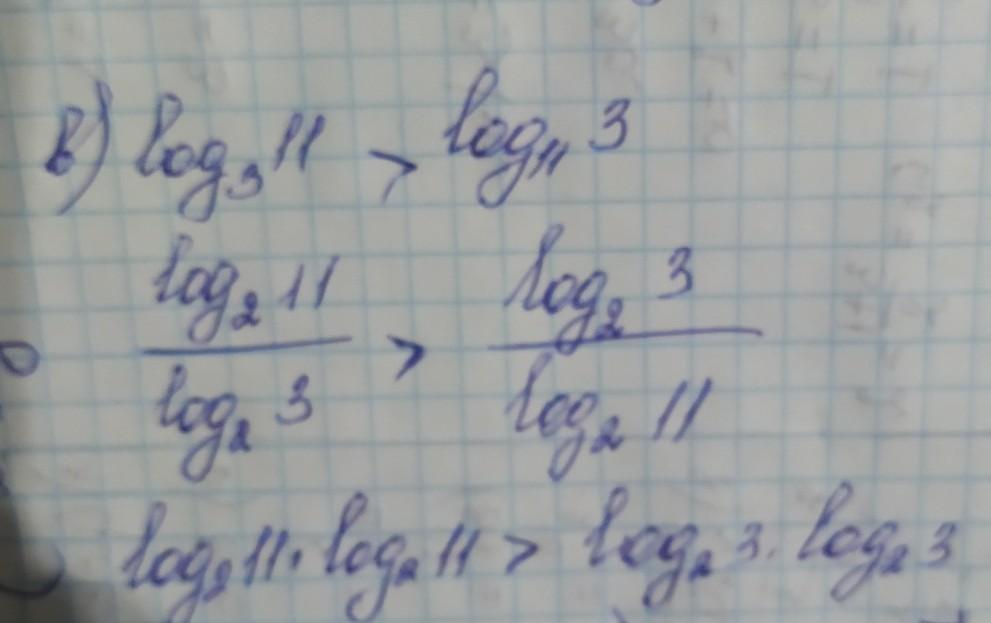 в) log₃ 11 > log₁₁ 3
log₂ 11 / log₂ 3 > log₂ 3 / log₂ 11
log₂ 11 · log₂ 11 > log₂ 3 · log₂ 3